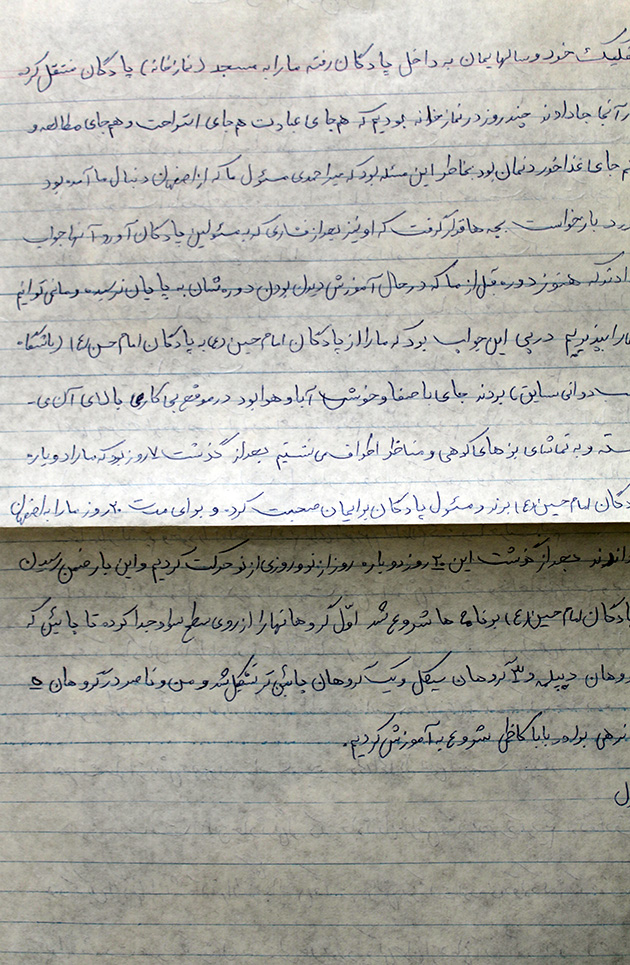 خود و سالهایمان به داخل پادگان رفته ما را به مسجد (نمازخانه) پادگان منتقل کرد
آنجا جا دادند چند روز در نمازخانه بودیم که هم جای عبادت هم جای استراحت و هم جای مطالعه و
جای غذا خوردنمان بود بخاطر این مسئله بود که میراحمدی مسئول ما که از اصفهان دنبال ما آمده بود
درخواست بچه ها قرار گرفت که او نیز بعد از فشاری که به مسئولین پادگان آورد آنها جواب
دادند که هنوز دوره قبل از ما که در حال آموزش دیدن بودن دوره شان به پایان نرسیده و ما نمی توانیم
بپذیریم در پی این جواب بود که ما را از پادگان امام حسین (ع) به پادگان امام حسن (ع) (باشگاه
دوانی سابق) بردند جای با صفا و خوش آب و هوا بود در موقع بی کاری بالای آن می
و به تماشای بزهای کوهی و مناظر اطراف می نشستیم بعد از گذشت ۷ روز بود که ما را دوباره
پادگان امام حسین (ع) برند و مسئول پادگان برایمان صحبت کرد و برای مدت ۲۰ روز ما را به اصفهان
بعد از گذشت این ۲۰ روز دوباره روز از نو روزی از نو حرکت کردیم و این بار ضمن رسیدن
پادگان امام حسین (ع) برنامه ها شروع شد اول گروهانها را از روی سطح سواد جدا کرده تا جائیکه
گروهان دیپلمه و ۳ گروهان سیکل و یک گروهان پائین تر تشکیل شد و من و ناصر در گروهان ۵
برادر بابا کاظمی شروع به آموزش کردیم.